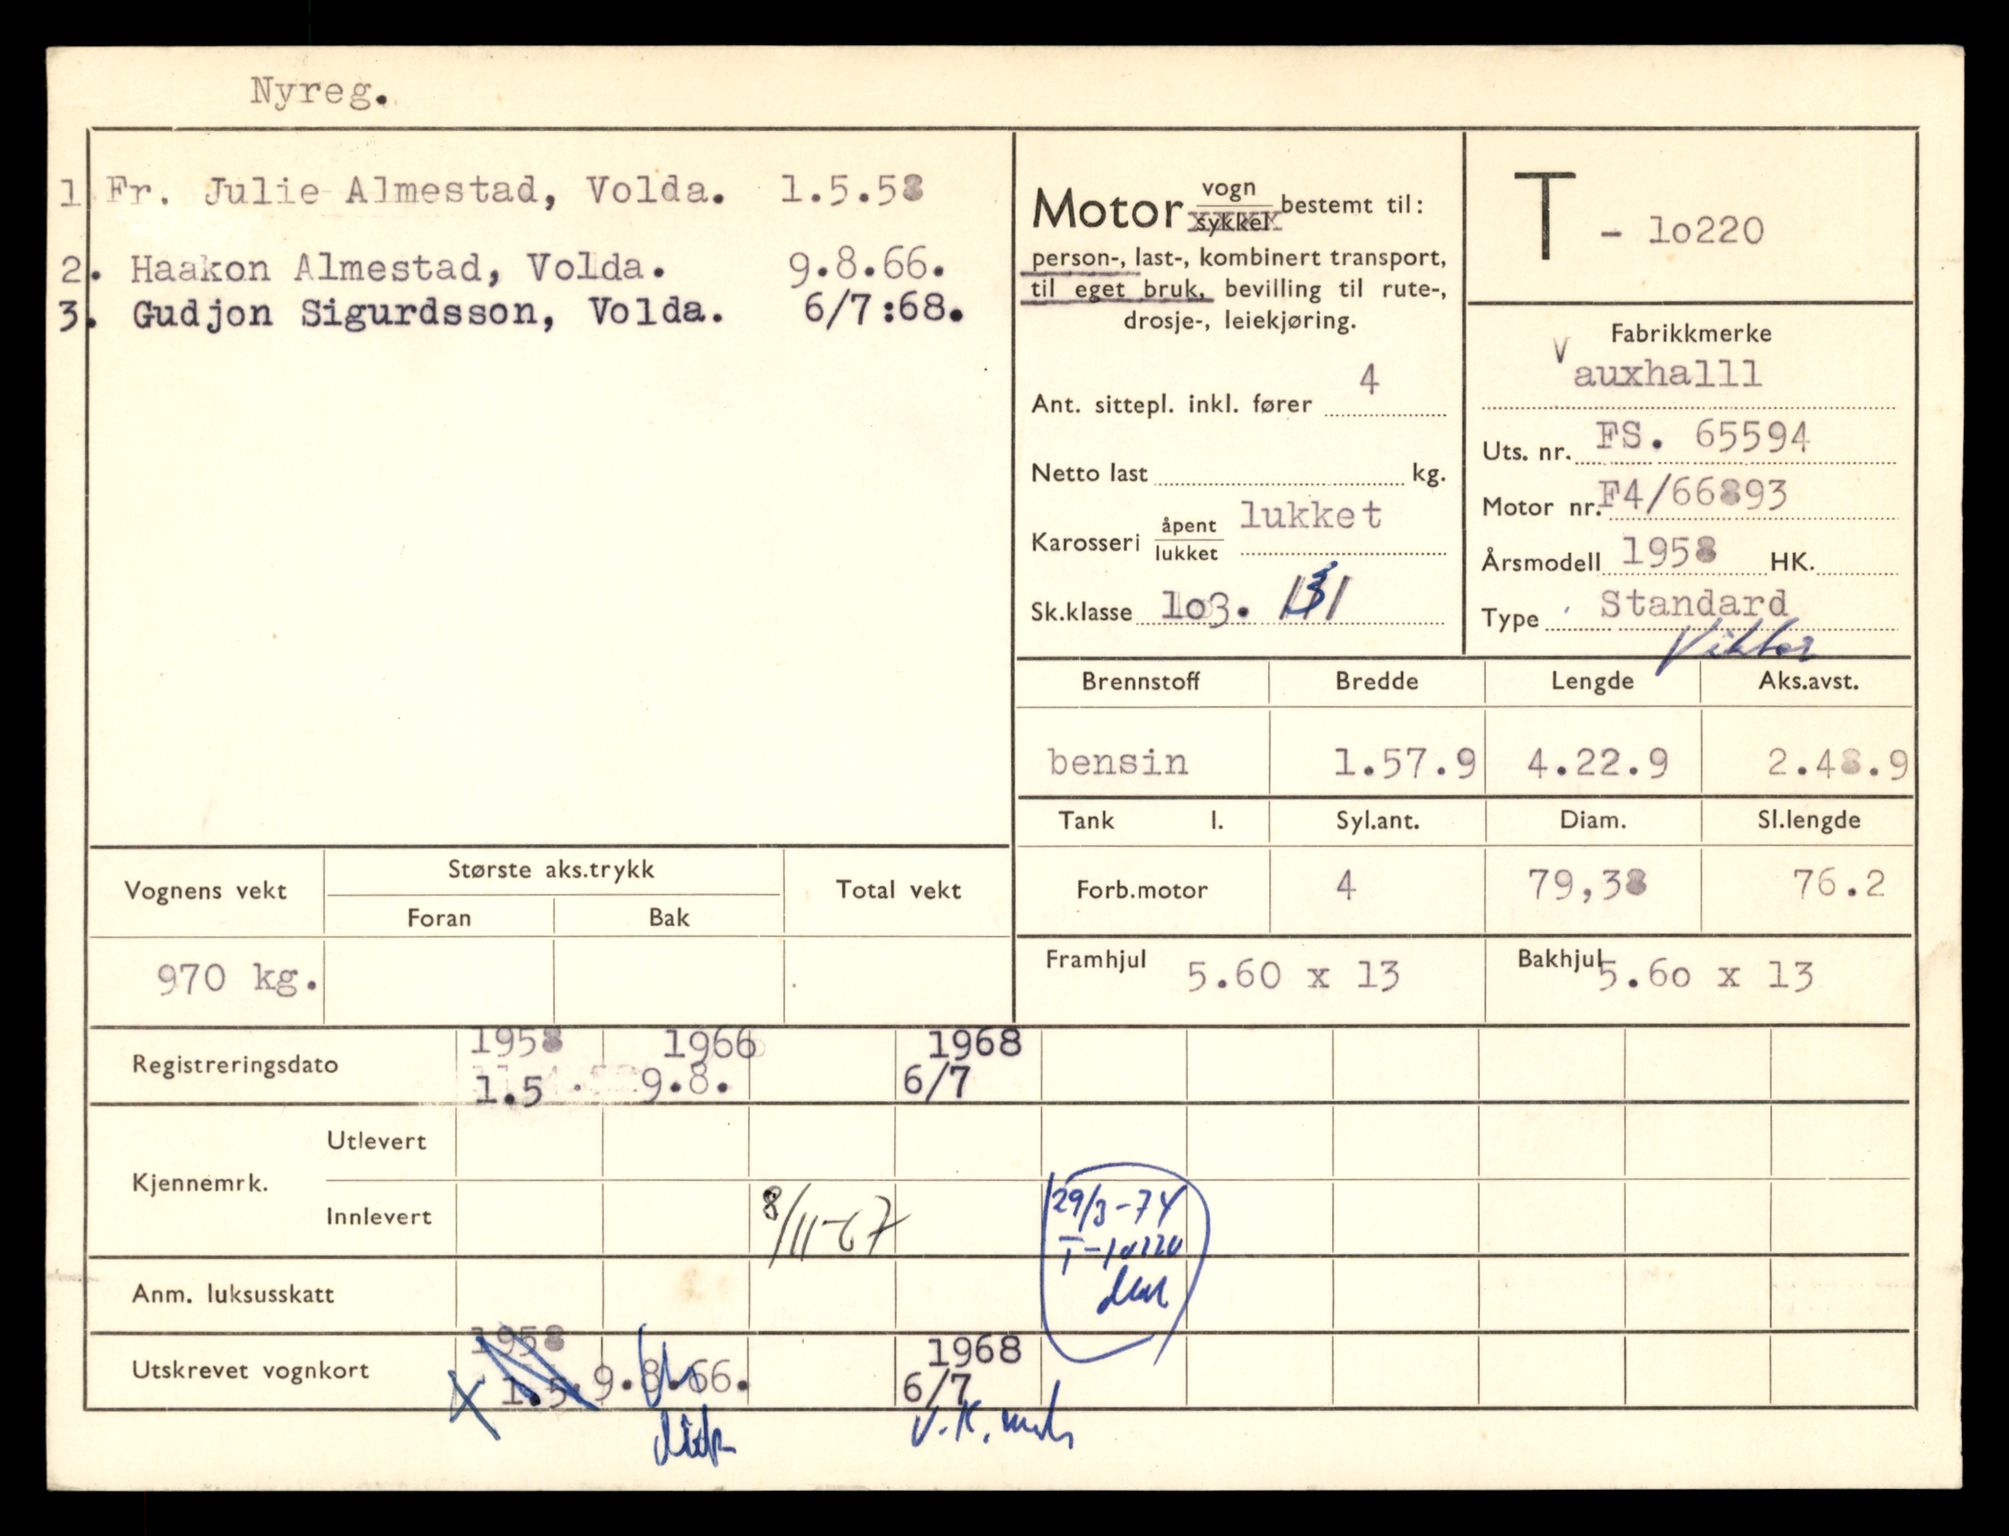 Nyreg.
1 Fr. Julie Almestad, Volda. 1.5.58
2. Haakon Almestad, Volda. 9.8.66.
3. Gudjon Sigurdsson, Volda. 6/7:68.
Motor vogn/sykkel bestemt til:
person-, last-, kombinert transport,
til eget bruk, bevilling til rute-,
drosje-, leiekjøring.
Ant. sittepl. inkl. fører 4
Netto last kg.
Karosseri åpent/lukket lukket
Sk.klasse lo3.
T - lo220
Fabrikkmerke
Vauxhalll
Uts. nr. FS. 65594
Motor nr. F4/66893
Årsmodell 1958 HK.
Type Standard
Viktor
Brennstoff Bredde Lengde Aks.avst.
bensin 1.57.9 4.22.9 2.48.9
Tank l. Syl.ant. Diam. Sl.lengde
Forb.motor 4 79,38 76.2
Framhjul 5.60 x 13 Bakhjul 5.6o x 13
Vognens vekt Største aks.trykk Total vekt
Foran Bak
970 kg.
1958 1966 1968
Registreringsdato
1.5 9.8. 6/7
Utlevert
Kjennemrk.
Innlevert 8/11-67 29/3-74
T-10220
Anm. luksusskatt
1958 1968
Utskrevet vognkort
1.5. 9.8.66. 6/7
V.K.